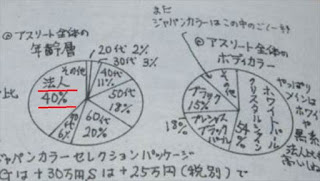 また
ジャパンカラーはこの中のごく一部
②アスリート全体の
年齢層
③アスリート全体の
ボディカラー
比
法人
40%
その他
20代 2%
30代 3%
40代
11%
50代
18%
60代
20%
70代
6%
その他
ブラック
15%
18%
プレシャス
ブラック
パール
ホワイトパール
クリスタルシャイン
54%
やっぱり
メインは
ホワイト
黒系
法人
ジャパンカラーセレクションパッケージ
Gは+30万円Sは+25万円(税別)で